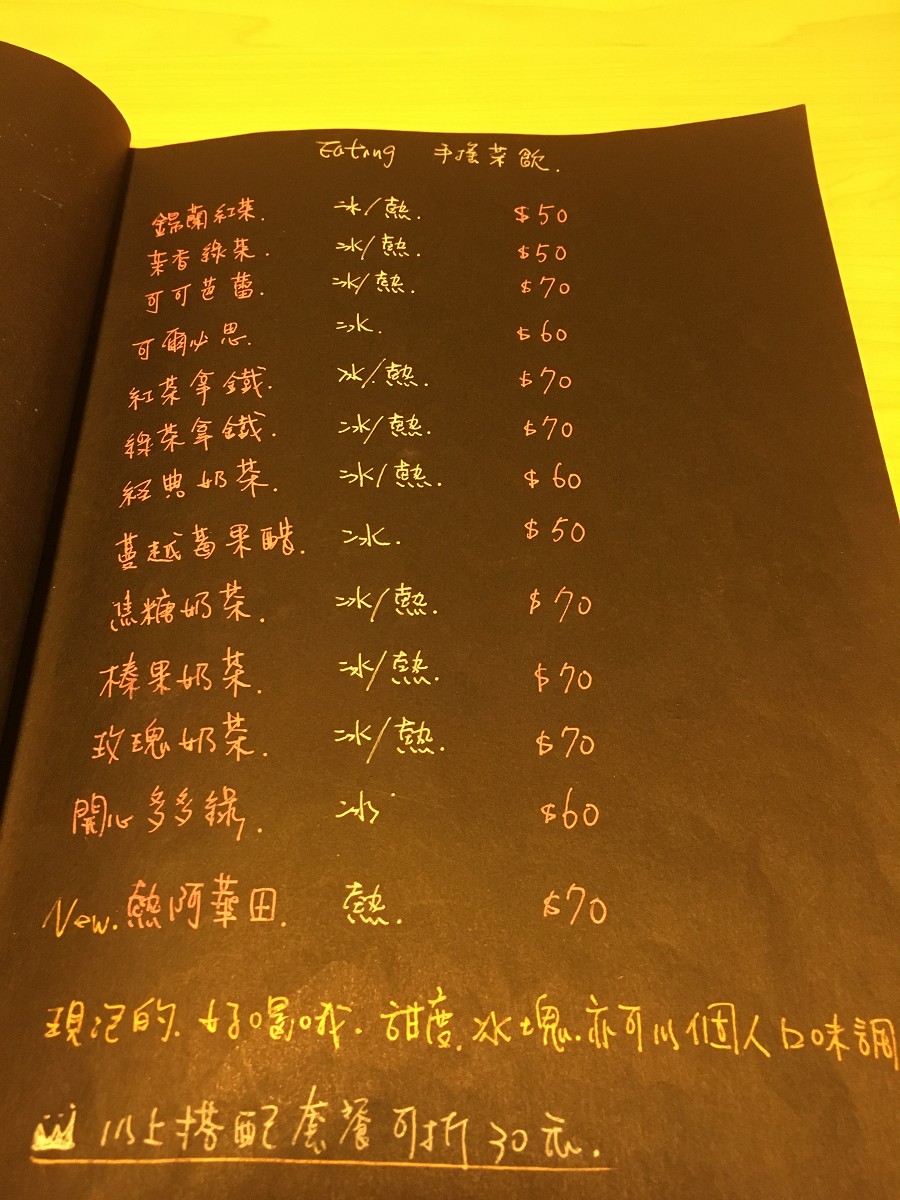 Eating 手搖茶飲.
錫蘭紅茶. 冰/熱. $50
茉香綠茶. 冰/熱. $50
可可芭蕾. 冰/熱. $70
可爾必思. 冰. $60
紅茶拿鐵. 冰/熱. $70
綠茶拿鐵. 冰/熱. $70
經典奶茶. 冰/熱. $60
蔓越莓果醋. 冰. $50
焦糖奶茶. 冰/熱. $70
榛果奶茶. 冰/熱. $70
玫瑰奶茶. 冰/熱. $70
開心多多綠. 冰 $60
New. 熱阿華田. 熱. $70
現泡的. 好喝哦. 甜度. 冰塊. 亦可以個人口味調
以上搭配套餐可折30元.